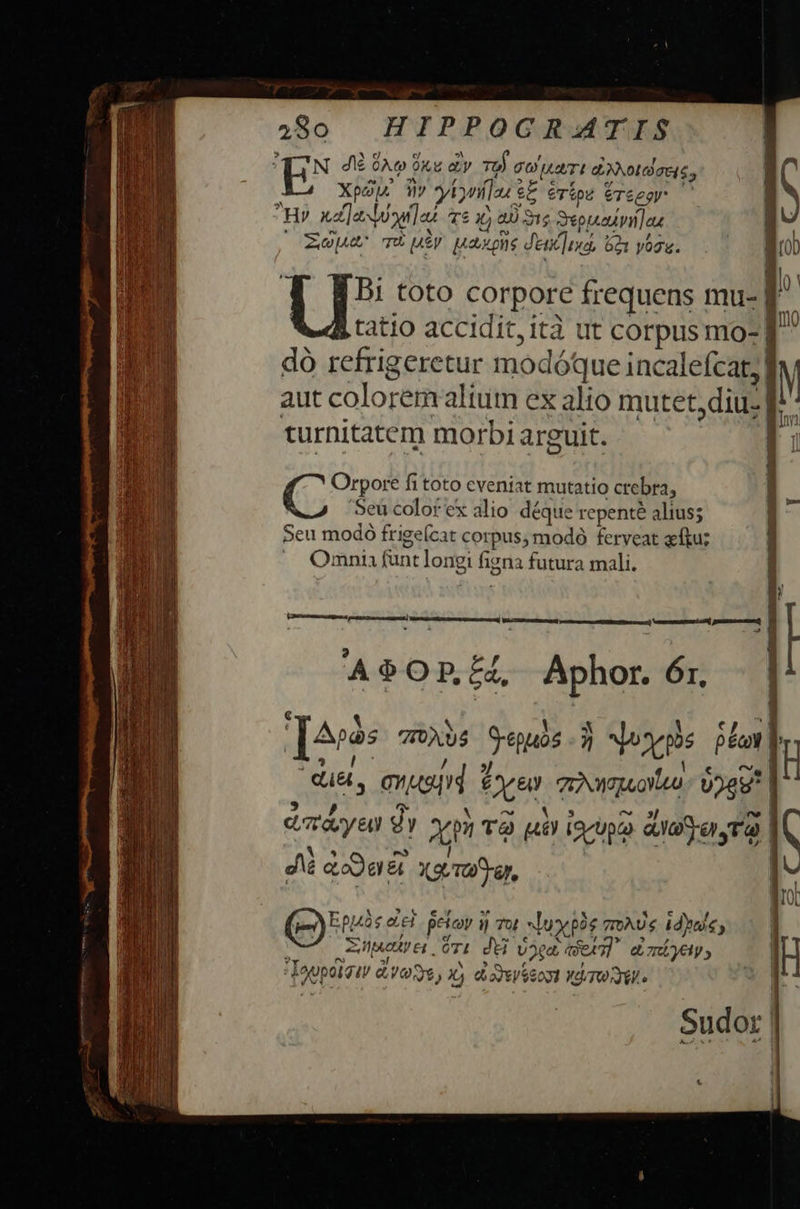 280 HIPPOCRATIS
ἘΝ δὲ ὅλῳ ὅκε ἂν τῷ σώματι ἀλλοιώσεις,
Χρῶμ' ἢν γίγνηται ἐξ ἑτέρȣ ἕτερον·
Ἢν καταψύχηται τε κὶ αὖθις θερμαίνηται
Σῶμα· τὰ μὲν μακρῆς δεικτικά, ὅτι νόσȣ.
UBi toto corpore frequens mu-
tatio accidit, ità ut corpus mo-
dò refrigeretur modóque incalescat,
aut colorem alium ex alio mutet, diu-
turnitatem morbi arguit.
COrpore si toto eveniat mutatio crebra,
Seu color ex alio déque repentè alius;
Seu modò frigescat corpus, modò ferveat æstu;
Omnia sunt longi signa futura mali.
ΑΦΟΡ. ξά, Aphor. 61,
ἹΔρὼς πολὺς θερμὸς ἢ ψυχρὸς ῥέων
αἰεὶ, σημαίνει ἔχειν πλησμονὴν ὑγρȣ͂·
ἀπάγειν ȣ̓͂ν χρὴ τῷ μὲν ἰσχυρῷ ἄνωθεν, τῷ
δὲ ἀσθενεῖ κάτωθεν.
ΘΕρμὸς ἀεὶ ῥείων ἤ τοι ψυχρὸς πολὺς ἱδρὼς,
Σημαίνει ὅτι δεῖ ὑγρὰ ἀπάγειν,
Ἰσχυροῖσιν ἄνωθε, κὶ ἀσθενέεσσι κάτωθεν.
Sudor